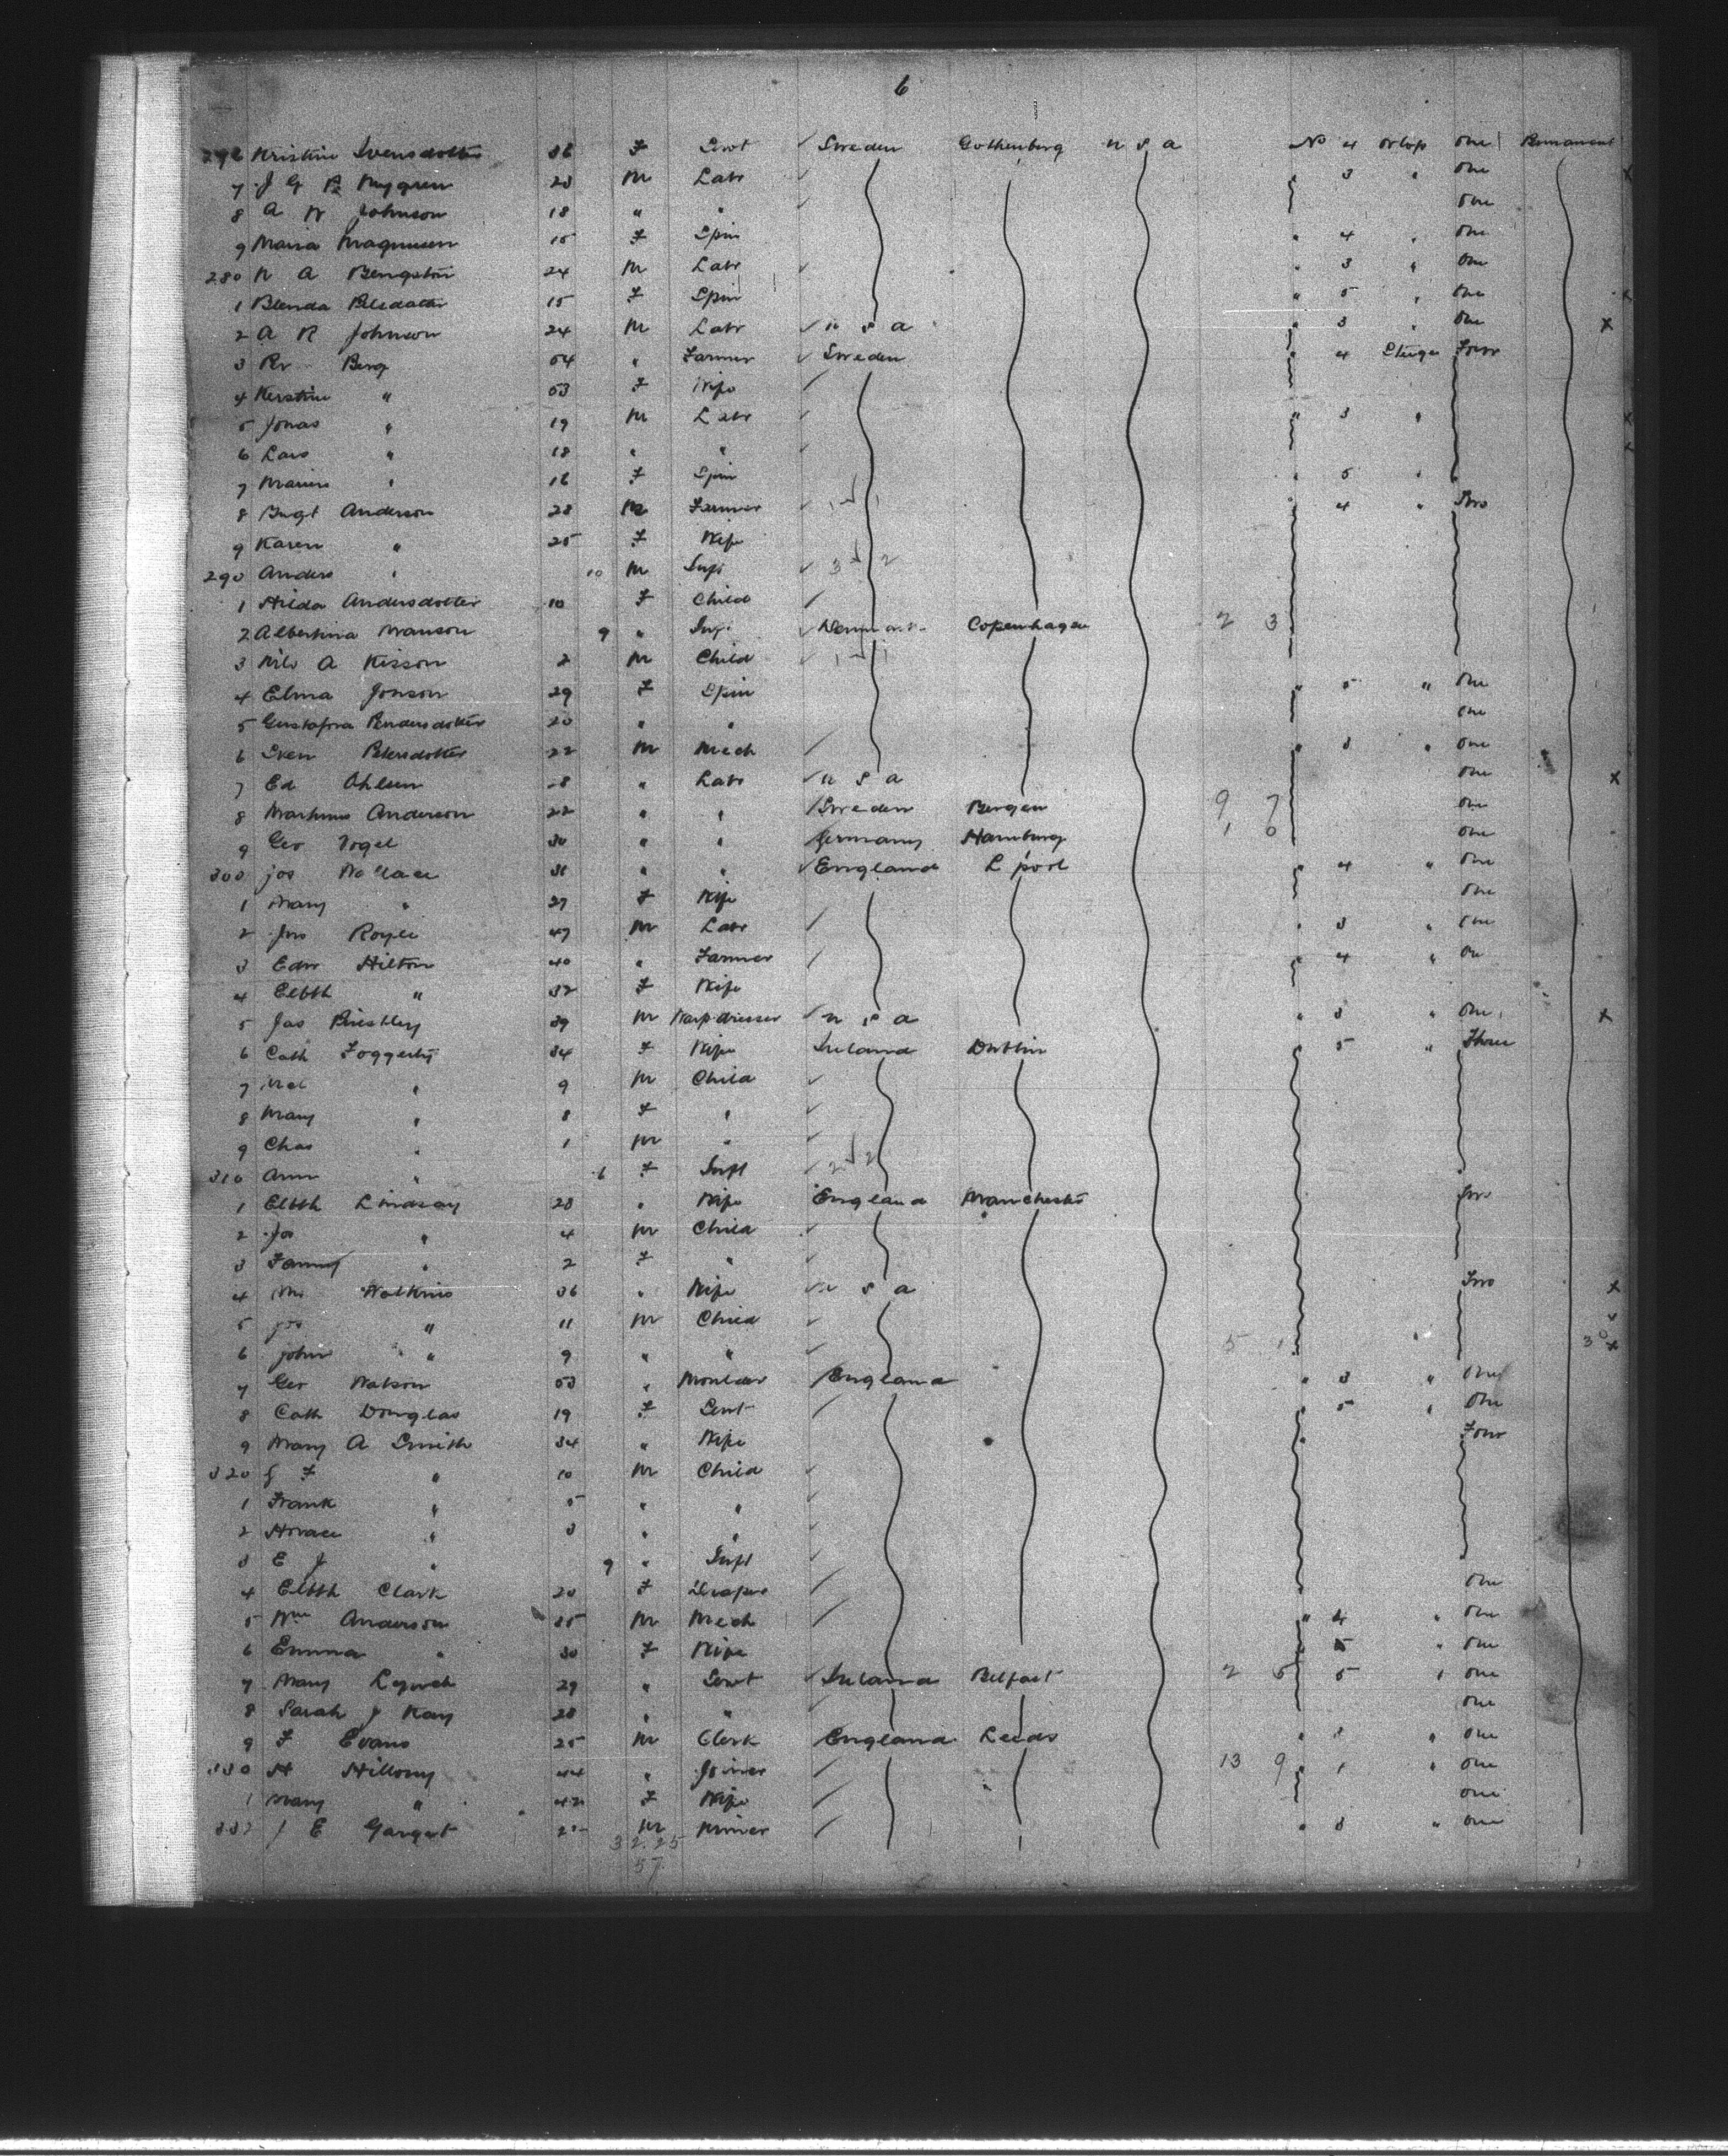 6
276 Kristine Svensdotter 36 F Servt ✓ Sweden Gothenburg U S A No 4 Orlop One Permanent
7 J G Nygren 23 M Labr ✓ " 3 " One x
8 A W Johnson 18 " " ✓ One
9 Maria Magnusen 15 F Spin " 4 " One
280 N A Bengston 24 M Labr ✓ " 3 " One
1 Blenda Pelsdotter 15 F Spin " 5 " One x
2 A R Johnson 24 M Labr ✓ U S A " 3 " One x
3 Pr Berg 54 " Farmer ✓ Sweden " 4 Steige Four
4 Kerstine " 53 F Wife /
5 Jonas " 19 M Labr ✓ " 3 " x
6 Lars " 18 " " ✓ x
7 " 16 F Spin " 5 "
8 Bengt Anderson 28 M Farmer ✓ " 4 " Two
9 Karen " 25 F Wife
290 Anders " 10 M Inft ✓ 3 2
1 Hilda Andersdotter 10 F Child /
2 Albertina Manson 9 " Inft ✓ Denmark Copenhagen 2 3
3 Nils A 2 M Child ✓ 1 1
4 Elma Jonson 29 F Spin " 5 " One
5 Gustafva 20 " " One
6 Sven Petersdotter 22 M Mech / " 3 " One
7 Ed Ohlsen 28 " Labr ✓ U S A One x
8 Martinus Anderson 22 " " / Sweden Bergen 9 7 One
9 Geo Vogel 30 " " Germany Hamburg 1 0 One
300 Jos Wallace 31 " " ✓ England L'pool " 4 " One
1 Mary " 27 F Wife One
2 Jno Royle 47 M Labr / " 3 " One
3 Edw Hilton 40 " Farmer / " 4 " One
4 Elbth " 32 F Wife
5 Jas Priestley 39 M Warp dresser ✓ U S A " 3 " One x
6 Cath Foggerty 34 F Wife Ireland Dublin " 5 " Three
7 " 9 M Child ✓
8 Mary " 8 F " ✓
9 Chas " 1 M " ✓
310 Ann " 6 F Inft ✓ 2 2
1 Elbth Lindsay 28 " Wife England Manchester Two
2 Jos " 4 M Child ✓
3 Fanny " 2 F " ✓
4 Mrs Watkins 36 " Wife ✓ U S A Two x
5 Jos " 11 M Child ✓
6 John " 9 " " ✓ 5 1 " 3 x
7 Geo Watson 53 " Moulder / England " 3 " One
8 Cath Douglas 19 F Servt / " 5 " One
9 Mary A Smith 34 " Wife " Four
320 G F " 10 M Child ✓
1 Frank " 5 " " ✓
2 Horace " 3 " " ✓
3 E J " 9 " Inft ✓
4 Elbth Clark 20 F Draper / One
5 Wm Anderson 35 M Mech / " 4 " One
6 Emma " 30 F Wife 5 " One
7 Mary 29 " Servt ✓ Ireland Belfast 2 5 5 " One
8 Sarah J Kay 28 " " / One
9 F Evans 25 M Clerk England Leeds " " One
330 H Hillony 44 " Joiner / 13 9 " 1 " One
1 Mary " 42 F Wife / One
332 J E Gargat M Miner / " 3 " One
32.25
57